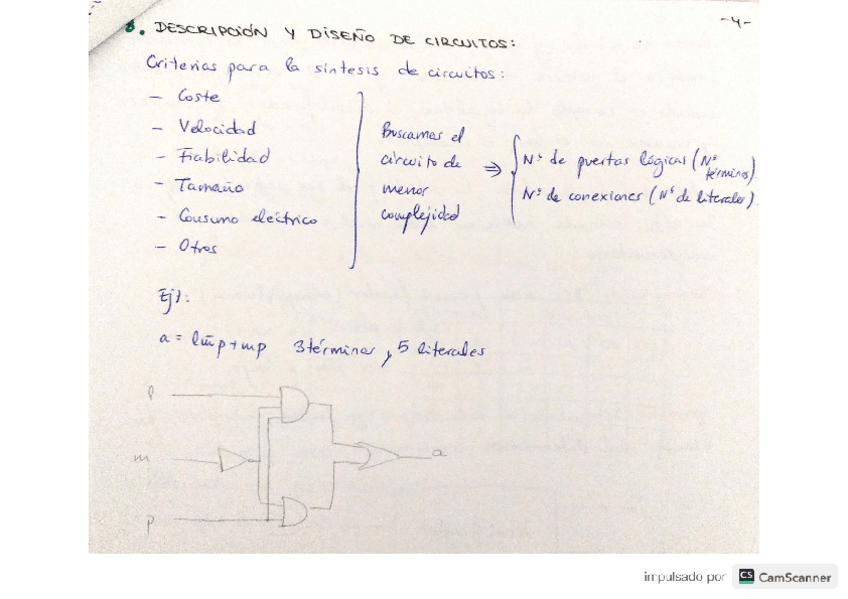 -4-
8. DESCRIPCIÓN Y DISEÑO DE CIRCUITOS:
Criterios para la síntesis de circuitos:
- Coste
- Velocidad
- Fiabilidad
- Tamaño
- Consumo eléctrico
- Otros
Buscamos el
circuito de
menor
complejidad
⇒
Nº de puertas lógicas (Nº
términos)
Nº de conexiones (Nº de literales)
Ej1:
a = lm̄p+mp 3 términos, 5 literales
l
m
p
a
impulsado por CS CamScanner